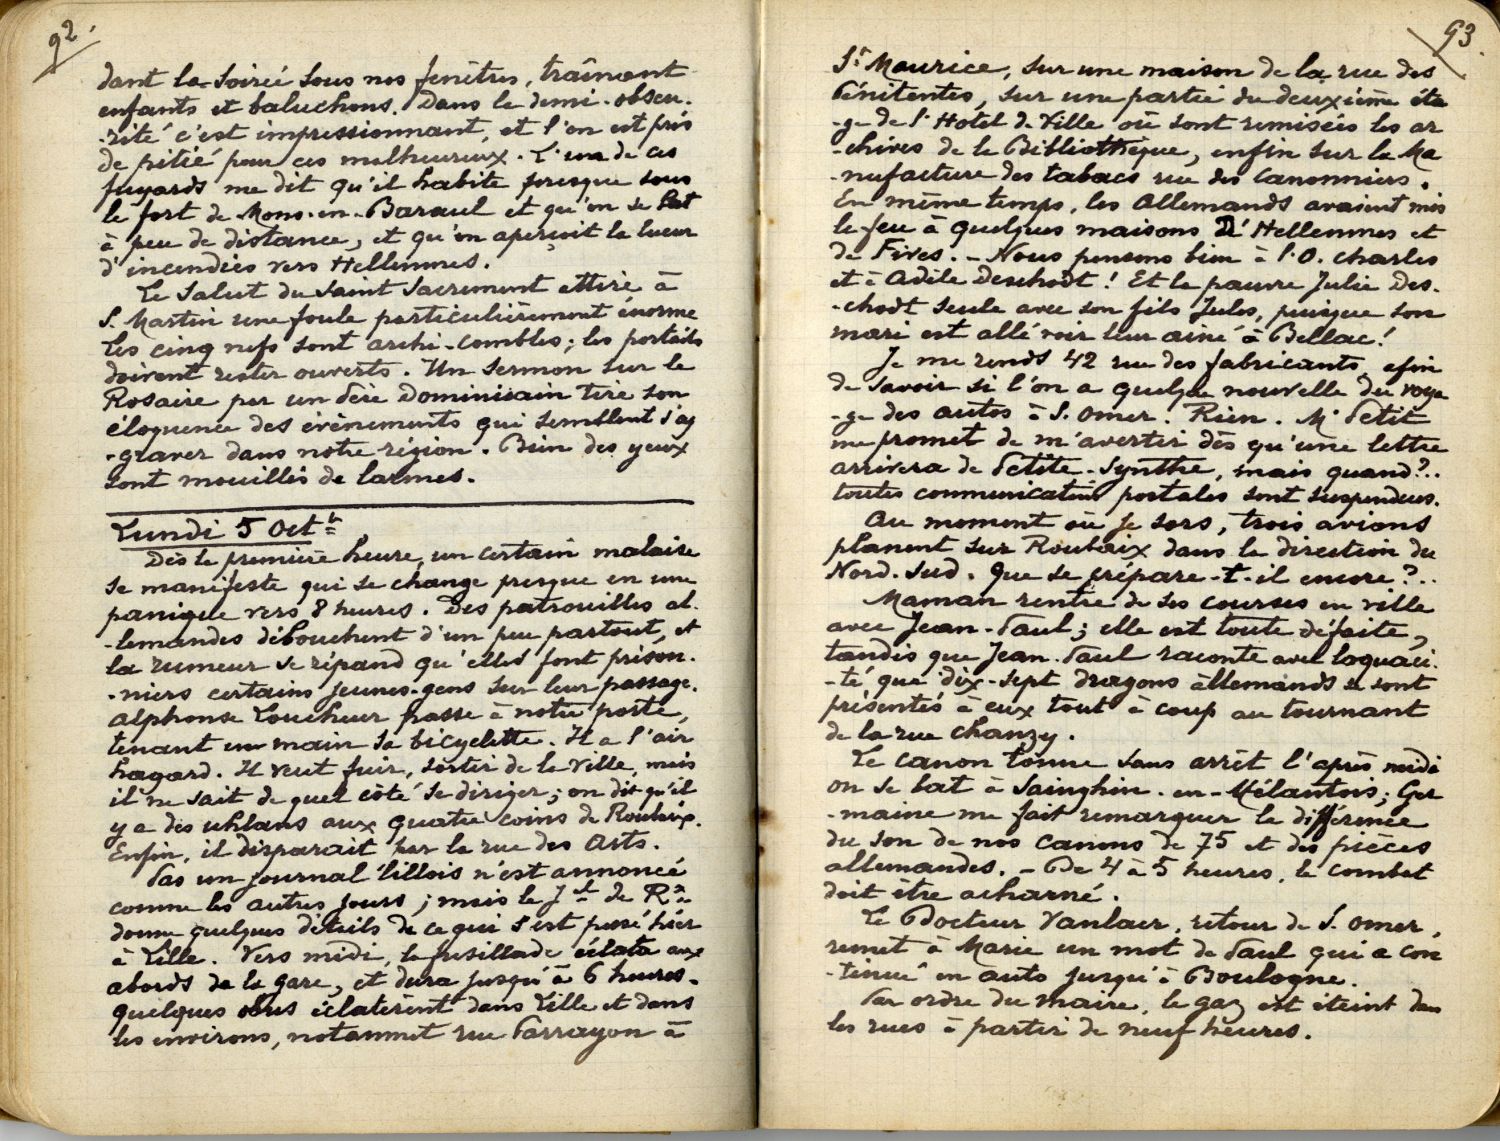 92.
dant la soirée sous nos fenêtres, traînant
enfants et baluchons. Dans la demi-obscu-
-rité c'est impressionnant, et l'on est pris
de pitié pour ces malheureux. L'un de ces
fuyards me dit qu'il habite presque sous
le fort de Mons-en-Barœul et qu'on se bat
à peu de distance, et qu'on aperçoit la lueur
d'incendies vers Hellemmes.
Le Salut du Saint Sacrement attire à
S. Martin une foule particulièrement énorme
Les cinq nefs sont archi-combles; les portails
doivent rester ouverts. Un sermon sur le
Rosaire par un Père Dominicain tire son
éloquence des évènements qui semblent s'ag
-graver dans notre région. Bien des yeux
sont mouillés de larmes.
Lundi 5 Oct.bre
Dès la première heure, un certain malaise
se manifeste qui se change presque en une
panique vers 8 heures. Des patrouilles al-
-lemandes débouchent d'un peu partout, et
la rumeur se répand qu'elles font prison-
-niers certains jeunes-gens sur leur passage.
Alphonse Loucheur passe à notre porte,
tenant en main sa bicyclette. Il a l'air
hagard. Il veut fuir, sortir de la ville, mais
il ne sait de quel côté se diriger; on dit qu'il
y a des uhlans aux quatre coins de Roubaix.
Enfin, il disparait par la rue des Arts.
Pas un journal lillois n'est annoncé
comme les autres jours; mais le J.al de R.x
donne quelques détails de ce qui s'est passé hier
à Lille. Vers midi, la fusillade éclata aux
abords de la gare, et dura jusqu'à 6 heures.
Quelques obus éclatèrent dans Lille et dans
les environs, notamment rue Parrayon à
93.
St Maurice, sur une maison de la rue des
Pénitentes, sur une partie du deuxième éta
-ge de l'Hotel de Ville où sont remisées les ar
-chives de la Bibliothèque, enfin sur la Ma
-nufacture des tabacs rue des Canonniers.
En même temps, les Allemands avaient mis
le feu à quelques maisons d'Hellemmes et
de Fives. - Nous pensons bien à l'O. Charles
et à Adèle Deschodt! Et la pauvre Julie Des-
-chodt seule avec son fils Jules, puisque son
mari est allé voir leur ainé à Bellac!
Je me rends 42 rue des fabricants, afin
de savoir si l'on a quelque nouvelle du voya
-ge des autos à S. Omer. Rien. Mr Petit
me promet de m'avertir dès qu'une lettre
arrivera de Petite-Synthe, mais quand?..
toutes communications postales sont suspendues.
Au moment où je sors, trois avions
planent sur Roubaix dans la direction du
Nord-Sud. Que se prépare-t-il encore?..
Maman rentre de ses courses en ville
avec Jean-Paul; elle est toute défaite,
tandis que Jean-Paul raconte avec loquaci-
-té que dix-sept dragons allemands se sont
présentés à eux tout à coup au tournant
de la rue Chanzy.
Le canon tonne sans arrêt l'après midi
on se bat à Sainghin-en-Mélantois; Ger
-maine me fait remarquer la différence
du son de nos canons de 75 et des pièces
allemandes. - De 4 à 5 heures, le combat
doit être acharné.
Le Docteur Vanlaer, retour de S. Omer,
remet à Marie un mot de Paul qui a con
-tinué en auto jusqu'à Boulogne.
Par ordre du maire, le gaz est éteint dans
les rues à partir de neuf heures.